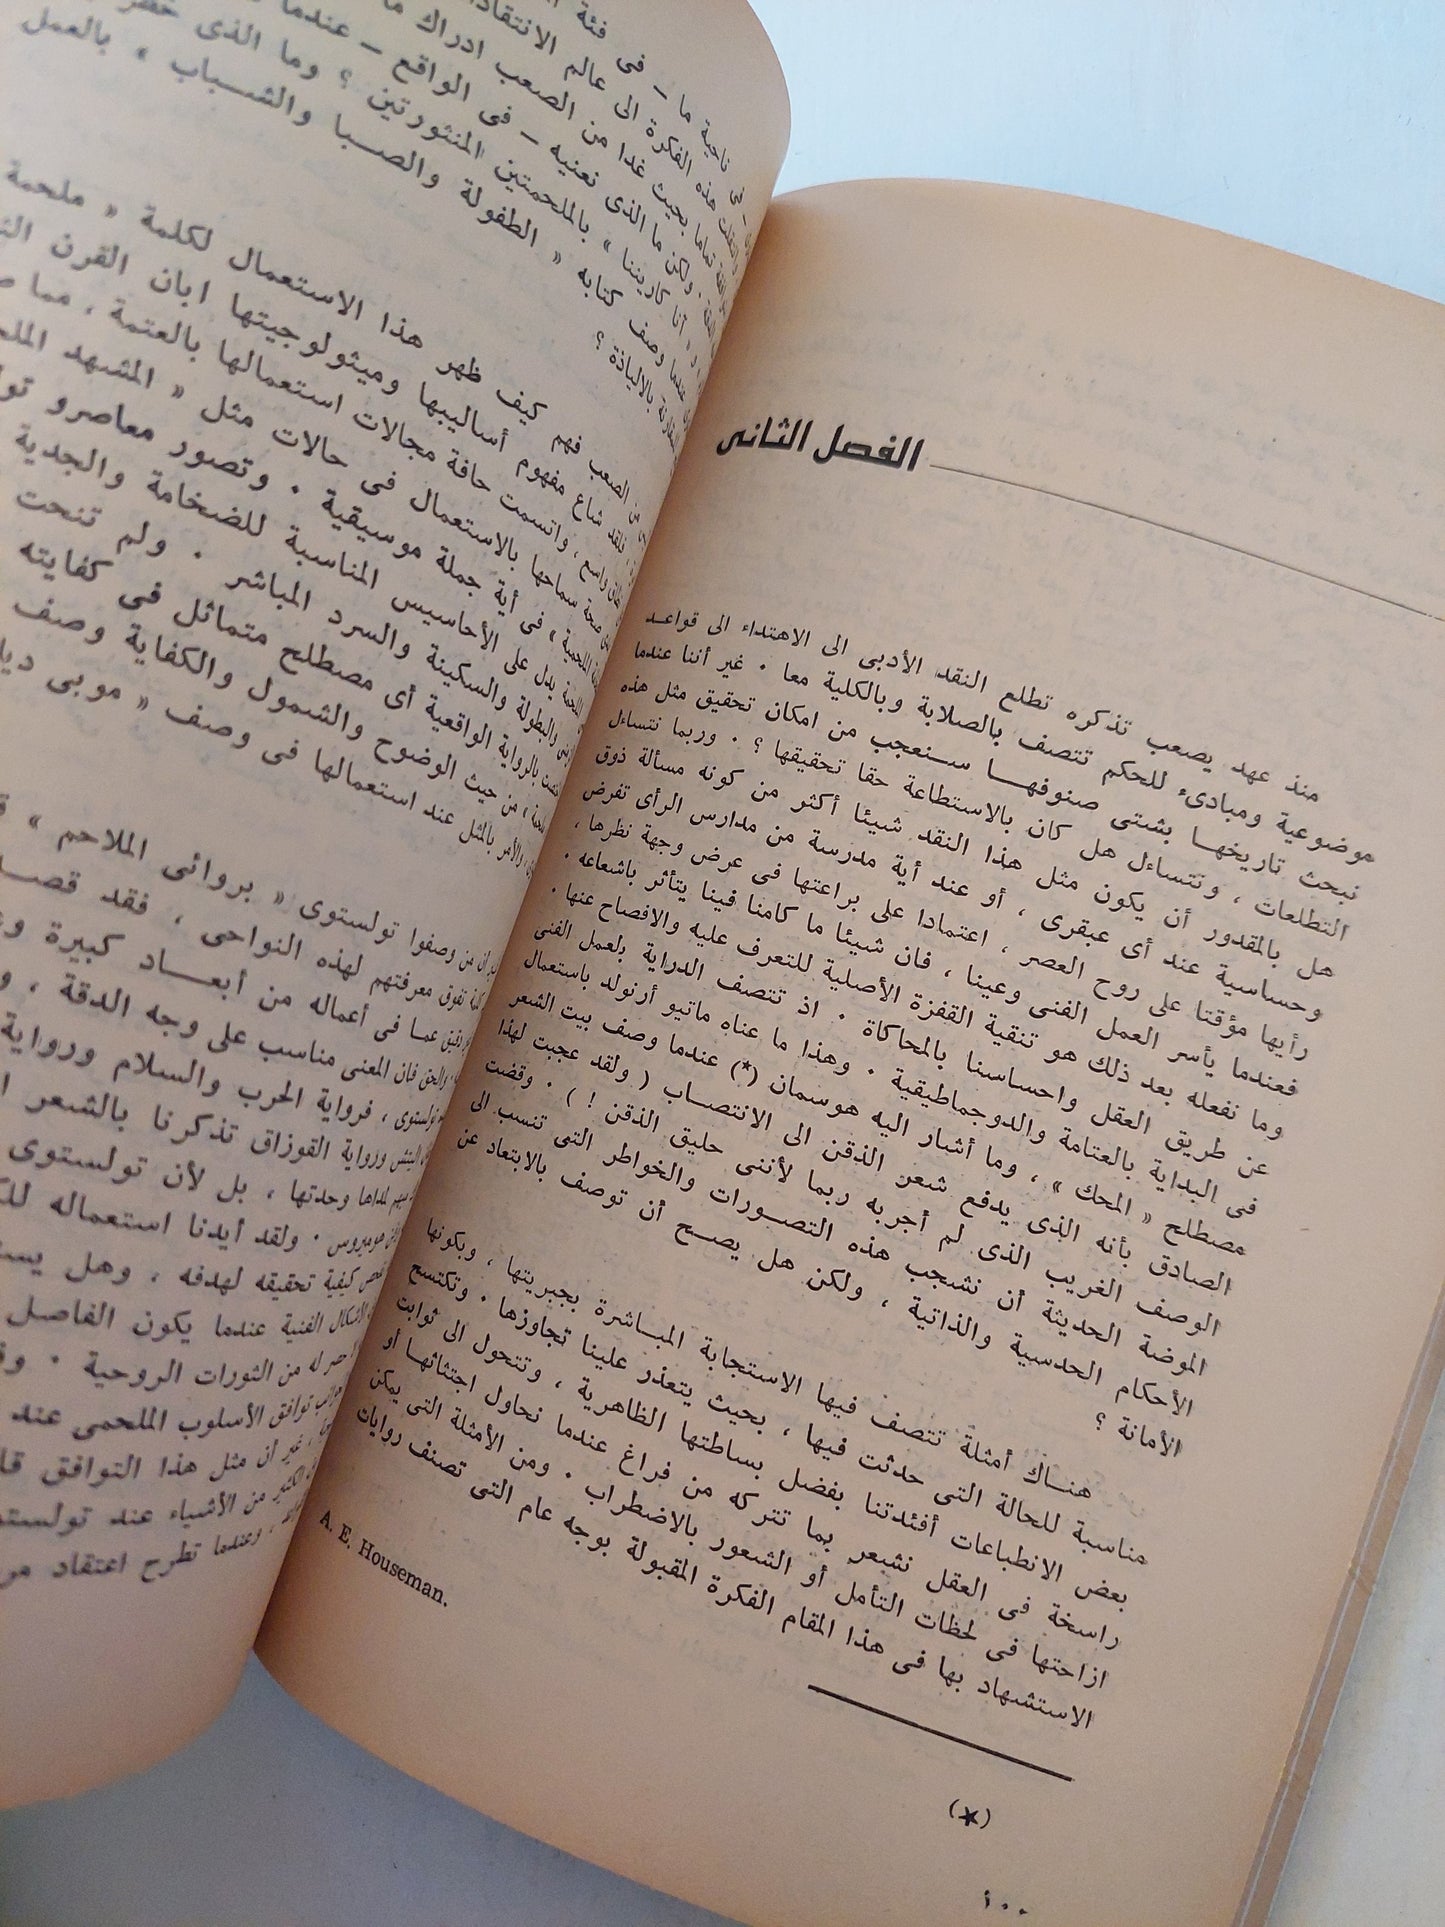 الفصل الثانى
منذ عهد يصعب تذكره تطلع النقد الأدبى الى الاهتداء الى قواعد
موضوعية ومبادىء للحكم تتصف بالصلابة وبالكلية معا . غير أننا عندما
نبحث تاريخها بشتى صنوفها سنعجب من امكان تحقيق مثل هذه
التطلعات ، ونتساءل هل كان بالاستطاعة حقا تحقيقها ؟ . وربما نتساءل
هل بالمقدور أن يكون مثل هذا النقد شيئا أكثر من كونه مسألة ذوق
وحساسية عند أى عبقرى ، أو عند أية مدرسة من مدارس الرأى تفرض
رأيها مؤقتا على روح العصر ، اعتمادا على براعتها فى عرض وجهة نظرها ،
فعندما يأسر العمل الفنى وعينا ، فان شيئا ما كامنا فينا يتأثر باشعاعه .
وما نفعله بعد ذلك هو تنقية القفزة الأصلية للتعرف عليه والافصاح عنها .
عن طريق العقل واحساسنا بالمحاكاة . اذ تتصف الدراية بلعمل الفنى
فى البداية بالعتامة والدوجماطيقية . وهذا ما عناه ماتيو أرنولد باستعمال
مصطلح « المحك » ، وما أشار اليه هوسمان (*) عندما وصف بيت الشعر
الصادق بأنه الذى يدفع شعر الذقن الى الانتصاب ( ولقد عجبت لهذا
الوصف الغريب الذى لم أجربه ربما لأننى حليق الذقن ! ) . وقضت
الموضة الحديثة أن نشجب هذه التصورات والخواطر التى تنسب الى
الأحكام الحدسية والذاتية ، ولكن هل يصح أن توصف بالابتعاد عن
الأمانة ؟
هناك أمثلة تتصف فيها الاستجابة المباشرة بجبريتها ، وبكونها
مناسبة للحالة التى حدثت فيها ، بحيث يتعذر علينا تجاوزها . وتكتسح
بعض الانطباعات أفئدتنا بفضل بساطتها الظاهرية ، وتتحول الى ثوابت
راسخة فى العقل نشعر بما تتركه من فراغ عندما نحاول اجتثاثها أو
ازاحتها فى لحظات التأمل أو الشعور بالاضطراب . ومن الأمثلة التى يمكن
الاستشهاد بها فى هذا المقام الفكرة المقبولة بوجه عام التى تصنف روايات
A. E. Houseman.
(*)
١٠٠
ناحية ما – فى فئة
هذه الفكرة الى عالم الانتقاد
تماما بحيث غدا من الصعب ادراك
ولكن ما الذى نعنيه – فى الواقع – عندما
أنا كارنينا » بالملحمتين المنثورتين ؟ وما الذى
عندما وصف كتابه « الطفولة والصبا والشباب » بالعمل
بالالياذة ؟
من الصعب فهم كيف ظهر هذا الاستعمال لكلمة « ملحمة
فلقد شاع مفهوم أساليبها وميثولوجيتها ابان القرن
واسع ، واتسمت حافة مجالات استعمالها بالعتمة ، مما
صحة سماحها بالاستعمال فى حالات مثل « المشهد
فى أية جملة موسيقية . وتصور معاصرو
يدل على الأحاسيس المناسبة للضخامة والجدية
والبطولة والسكينة والسرد المباشر . ولم تنحت
بالرواية الواقعية أى مصطلح متماثل فى كفايته
من حيث الوضوح والشمول والكفاية وصف
والأمر بالمثل عند استعمالها فى وصف « موبى
أن من وصفوا تولستوى « بروائى الملاحم »
تفوق معرفتهم لهذه النواحى ، فقد
عما فى أعماله من أبعاد كبيرة
والحق فان المعنى مناسب على وجه الدقة ،
تولستوى ، فرواية الحرب والسلام ورواية
ورواية القوزاق تذكرنا بالشعر
وحدتها ، بل لأن تولستوى
هوميروس . ولقد أيدنا استعماله
كيفية تحقيقه لهدفه ، وهل
الأشكال الفنية عندما يكون الفاصل
له من الثورات الروحية .
توافق الأسلوب الملحمى عند
غير أن مثل هذا التوافق
الكثير من الأشياء عند
وعندما تطرح اعتقاد